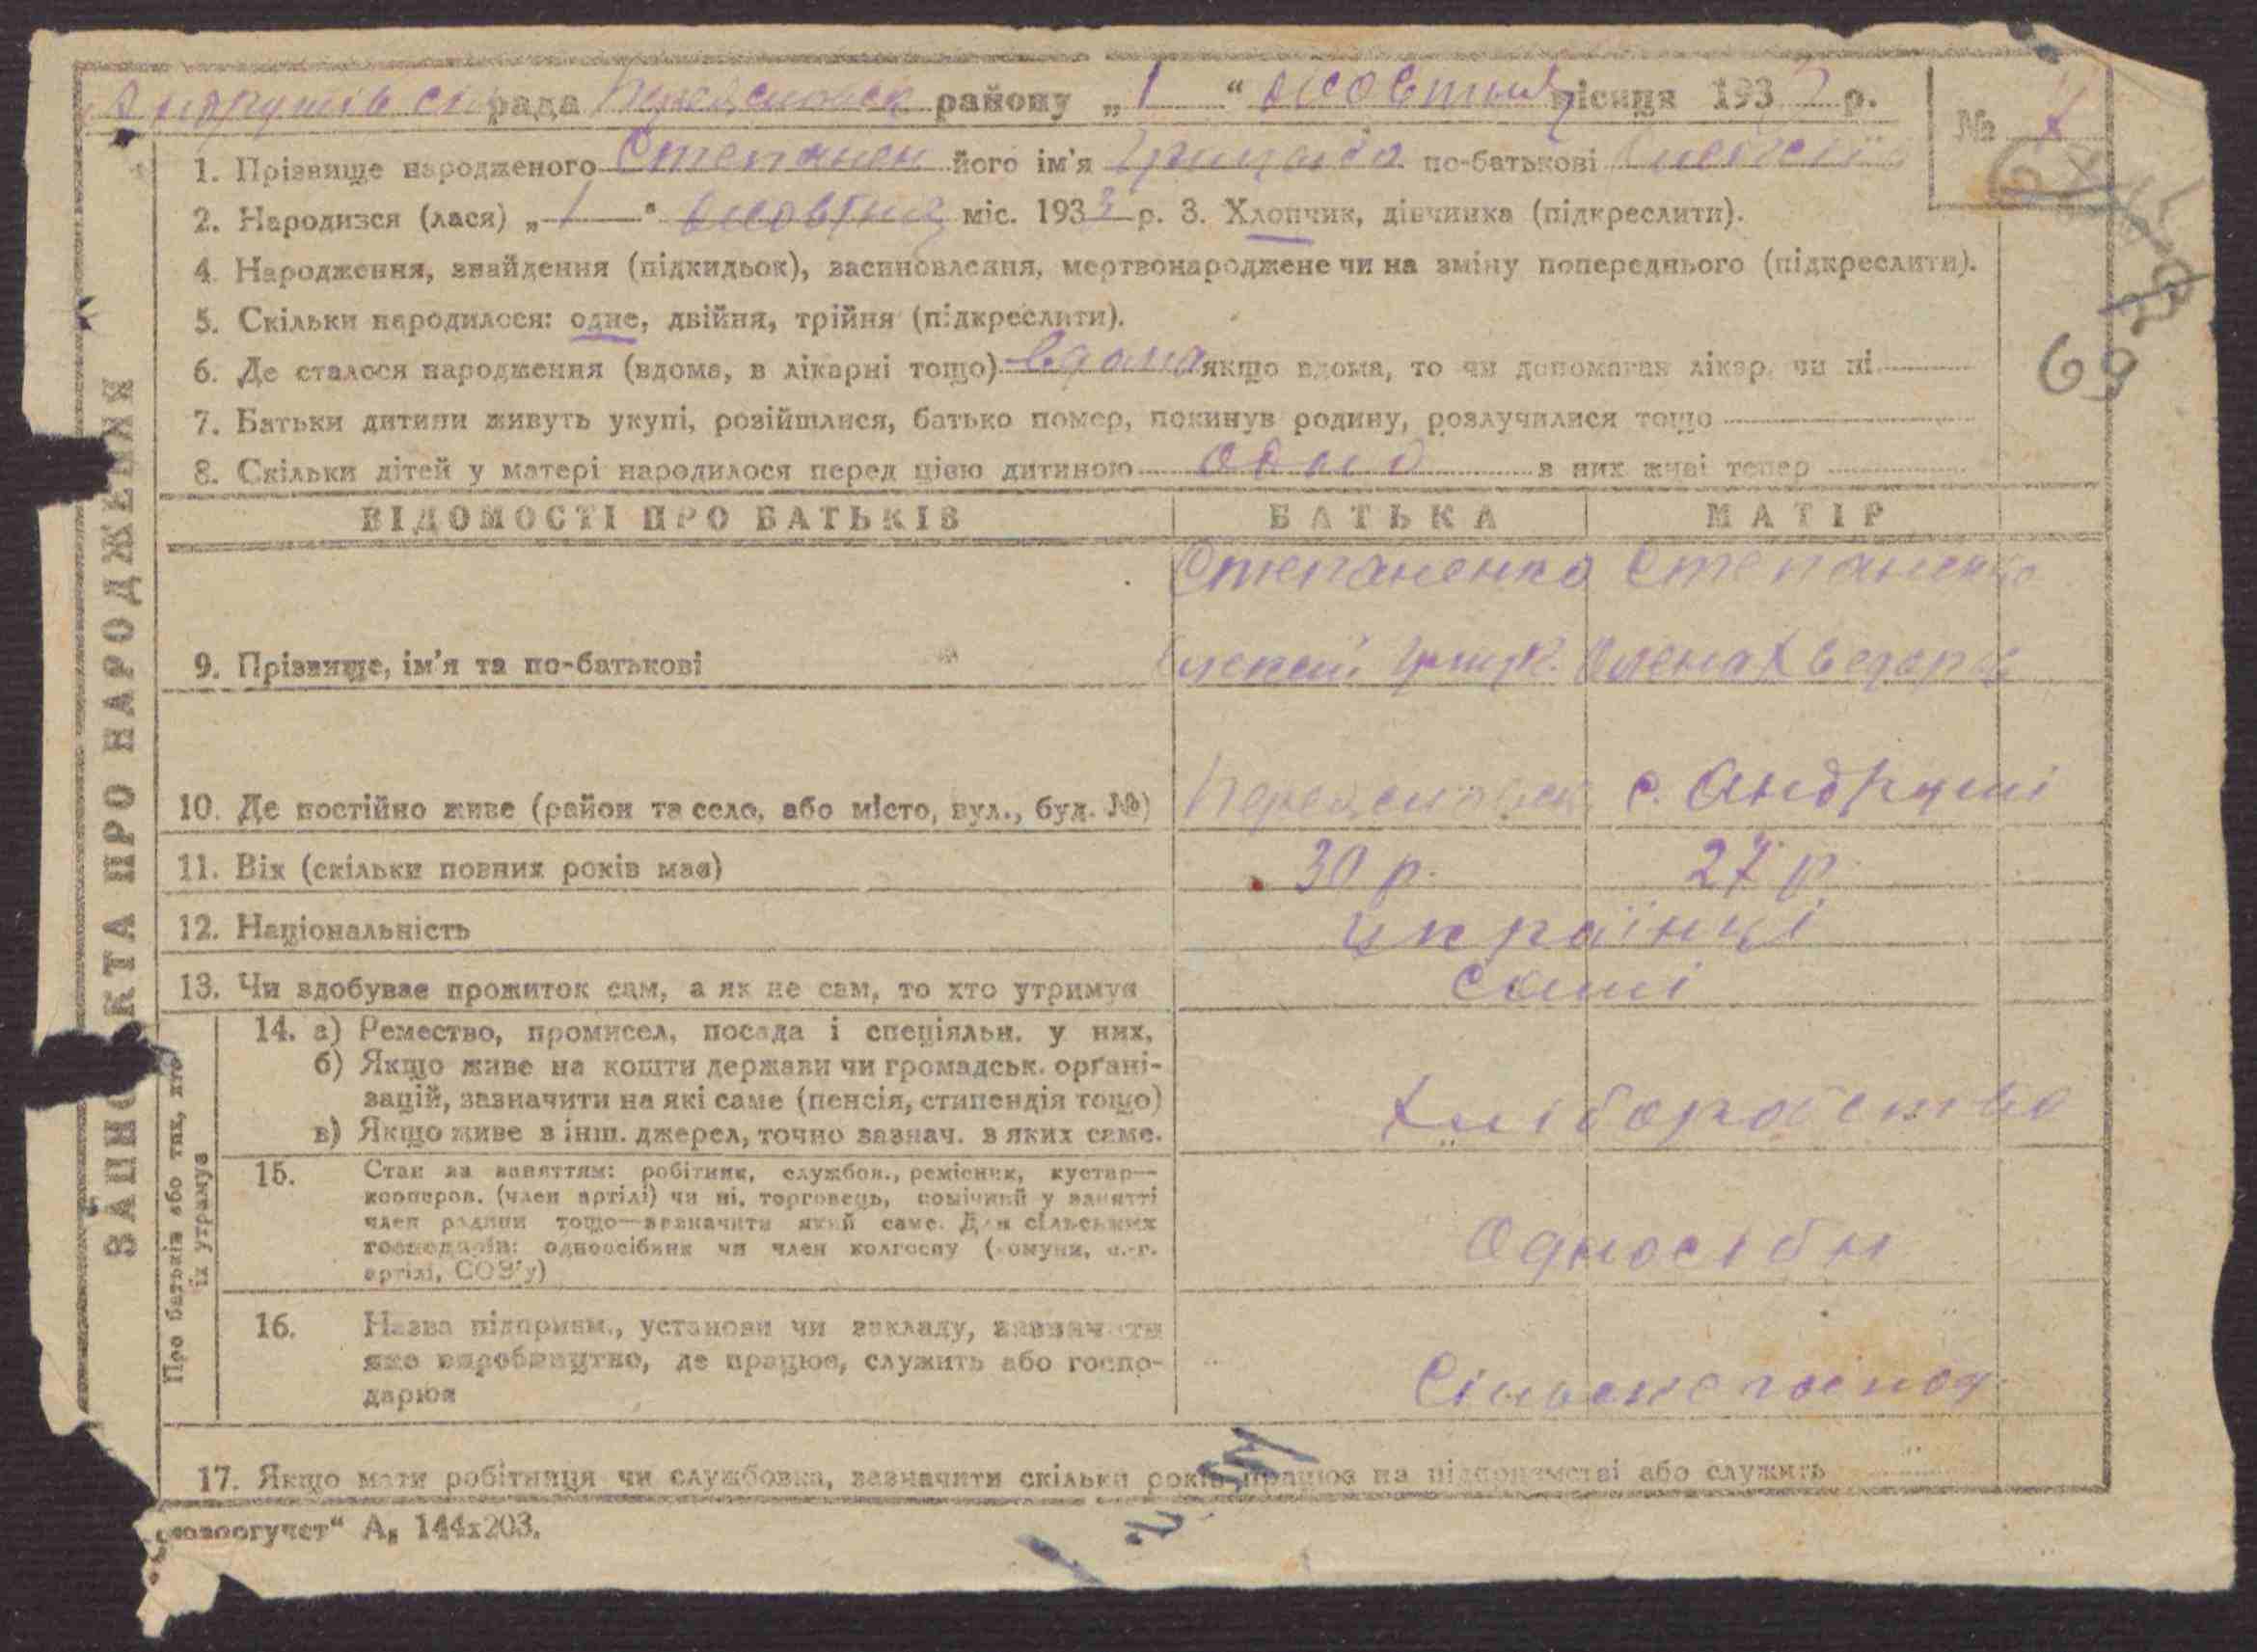 рада Переяславск району „1“ жовтня місяця 193 р. №
1. Прізвище народженого Степанен його ім'я по-батькові
2. Народився (лася) „1“ жовтня міс. 1933 р. 3. Хлопчик, дівчинка (підкреслити).
4 Народження, знайдення (підкидьок), засиновлення, мертвонароджене чи на зміну попереднього (підкреслити).
5. Скільки народилося: одне, двійня, трійня (підкреслити).
6. Де сталося народження (вдома, в лікарні тощо) вдома якщо вдома, то чи допомагав лікар, чи ні
69
7. Батьки дитини живуть укупі, розійшлися, батько помер, покинув родину, розлучилися тощо
8. Скільки дітей у матері народилося перед цією дитиною одно з них живі тепер
ВІДОМОСТІ ПРО БАТЬКІВ БАТЬКА МАТІР
Степаненко Степаненко
9. Прізвище, ім'я та по-батькові Олексій Григ. Олена Хведор
10. Де постійно живе (район та село, або місто, вул., буд. №) Переяславск с. Андруші
11. Вік (скільки повних років має) 30 р. 27 р.
12. Національність українці
13. Чи здобуває прожиток сам, а як не сам, то хто утримує самі
14. а) Ремество, промисел, посада і спеціяльн. у них,
б) Якщо живе на кошти держави чи громадськ. органі-
зацій, зазначити на які саме (пенсія, стипендія тощо)
в) Якщо живе з інш. джерел, точно зазнач. з яких саме.
хліборобство
15. Стан за заняттям: робітник, службов., ремісник, кустар—
кооперов. (член артілі) чи ні, торговець, помічний у занятті
член родини тощо—зазначити який саме. Для сільських
господарів: одноосібник чи член колгоспу (комуни, с.-г.
артілі, СОЗ'у)
Односібн
16. Назва підприєм., установи чи закладу, зазначити
яке виробництво, де працює, служить або госпо-
дарює
Сільське господ.
17. Якщо мати робітниця чи службовка, зазначити скільки років працює на підприємстві або служить
А₅ 144х203.
КТА ПРО НАРОДЖЕННЯ
Про батьків або тих, хто
їх утримує